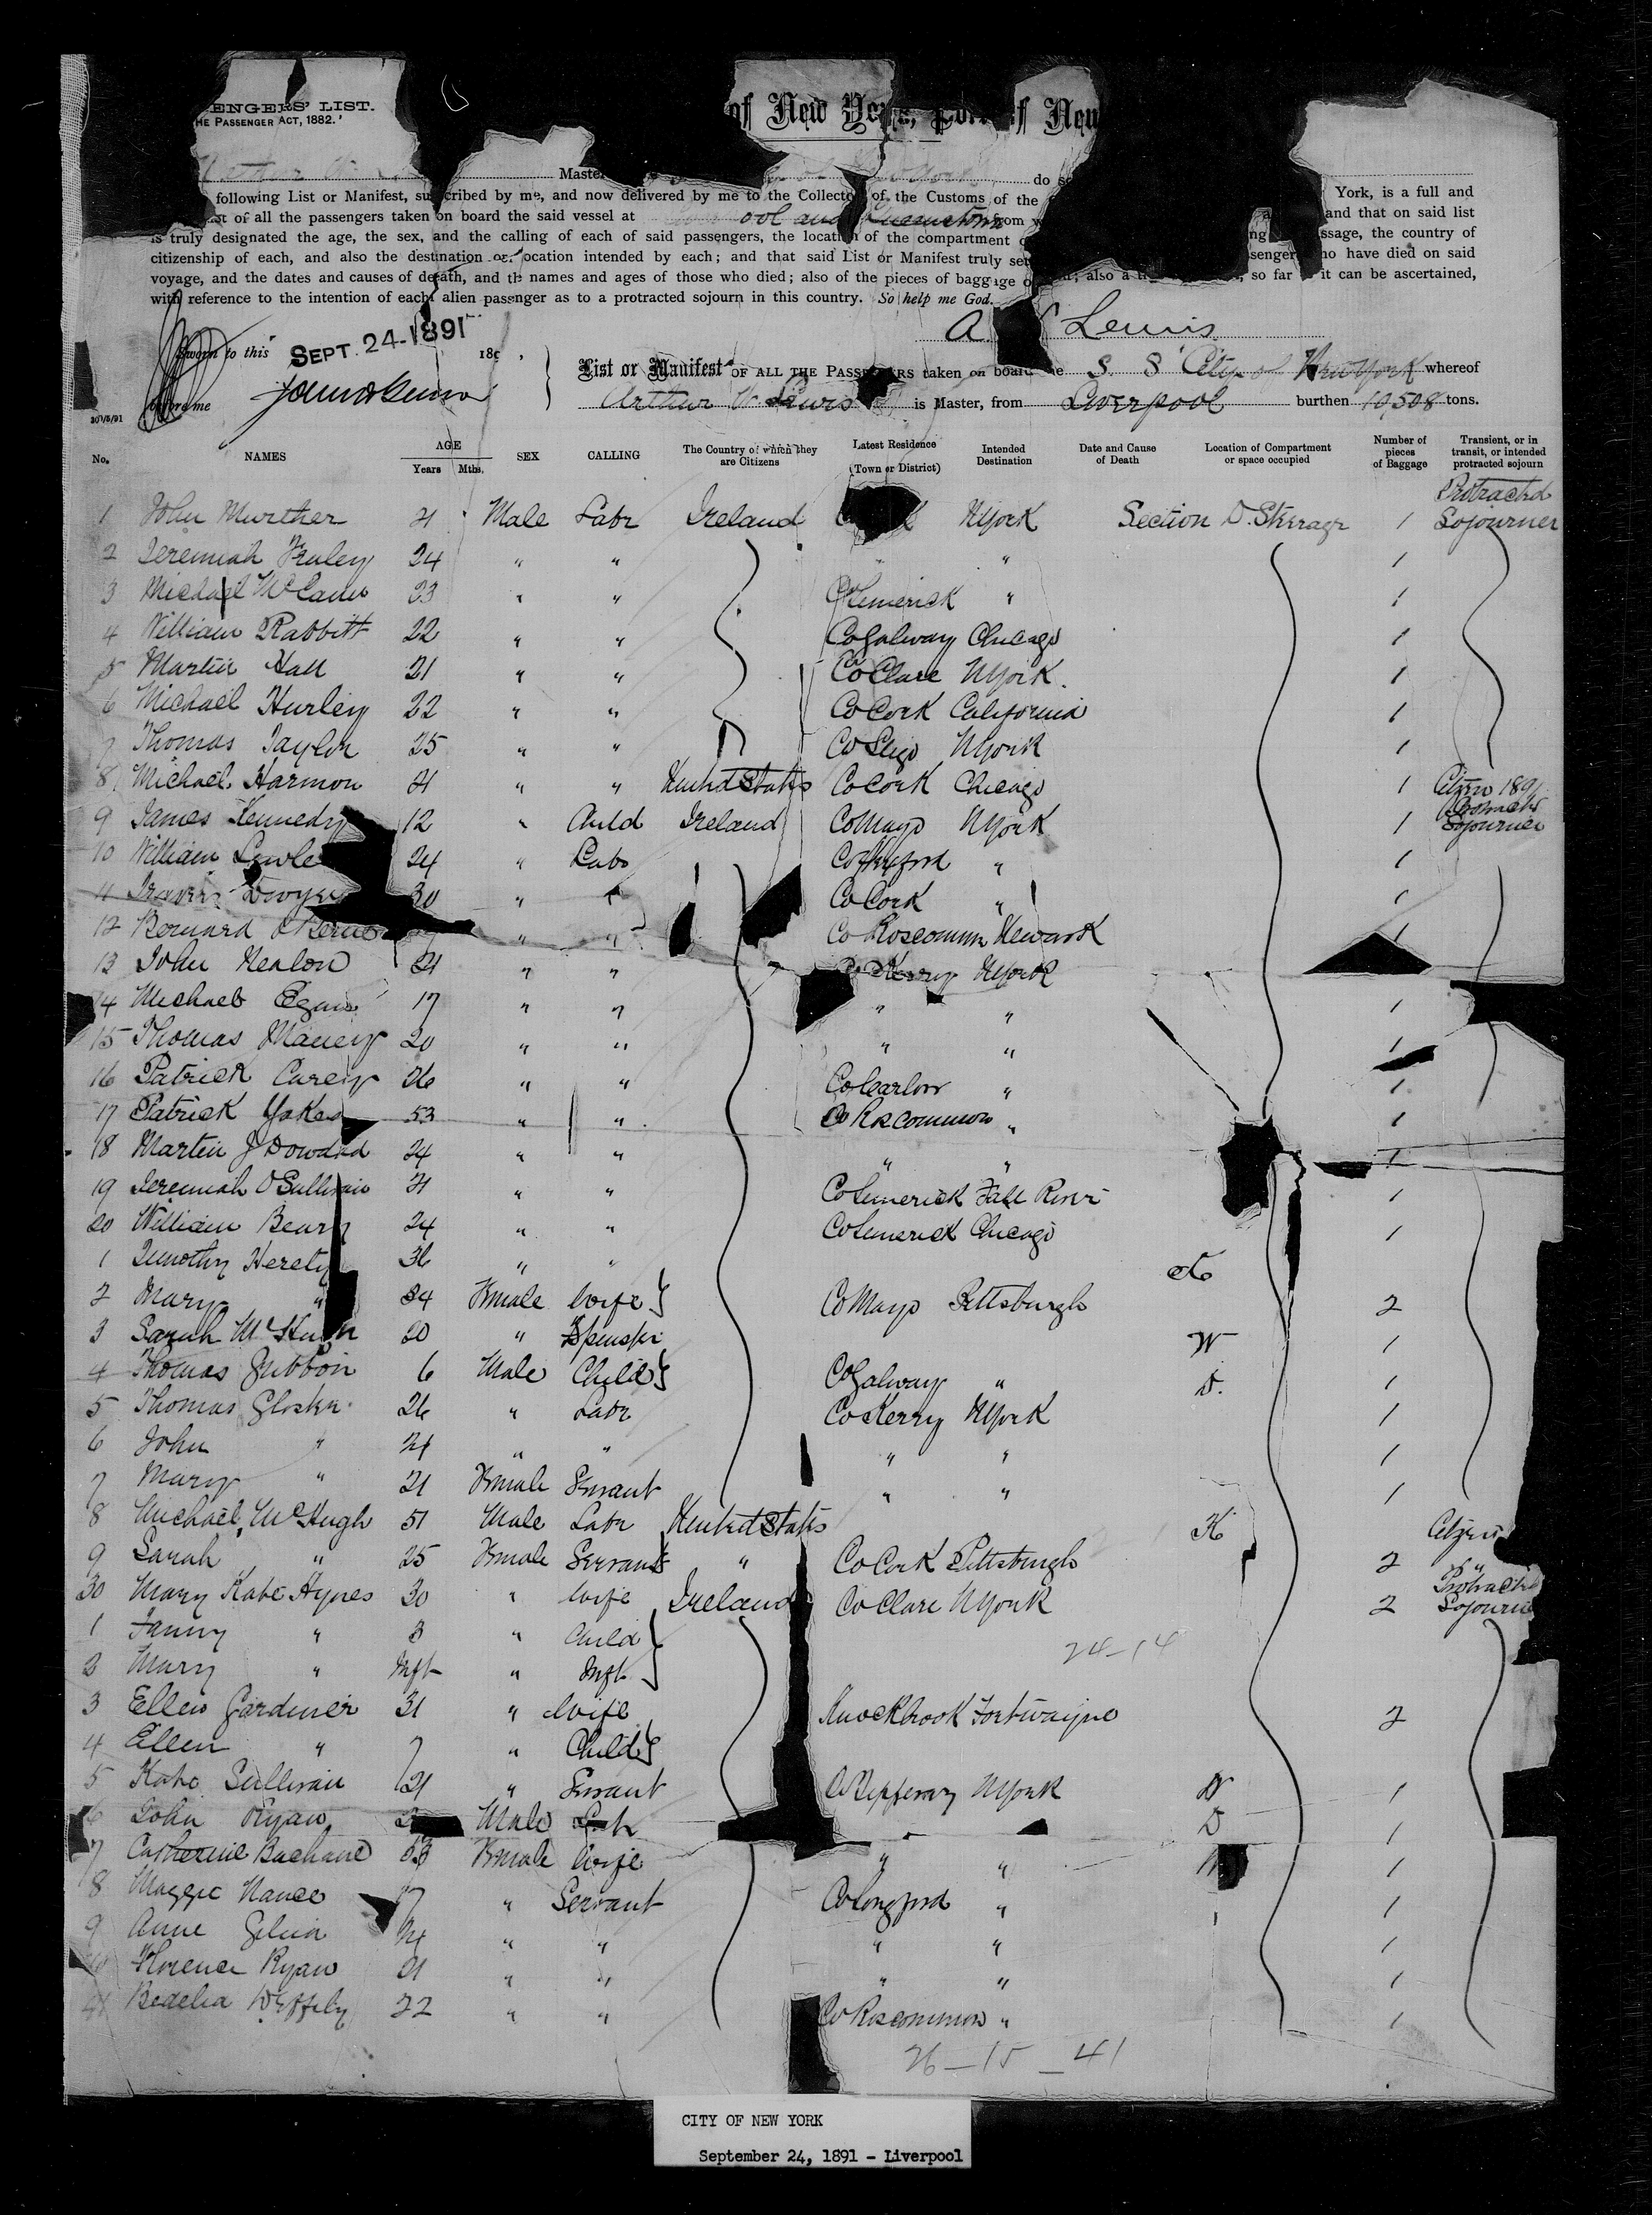 ENGERS' LIST.
HE PASSENGER ACT, 1882.
of New York, Port of New
Master do
following List or Manifest, subscribed by me, and now delivered by me to the Collector of the Customs of the York, is a full and
of all the passengers taken on board the said vessel at ool and Queenstown from and that on said list
is truly designated the age, the sex, and the calling of each of said passengers, the location of the compartment ssage, the country of
citizenship of each, and also the destination or location intended by each; and that said List or Manifest truly set ho have died on said
voyage, and the dates and causes of death, and the names and ages of those who died; also of the pieces of baggage also a so far it can be ascertained,
with reference to the intention of each alien passenger as to a protracted sojourn in this country. So help me God.
A. Lewis
Sworn to this SEPT. 24-1891 189 ,
before me
List or Manifest OF ALL THE PASSENGERS taken on board the S. S City of New York whereof
Arthur W Lewis is Master, from Liverpool burthen 10,508 tons.
No. NAMES AGE Years Mths. SEX CALLING The Country of which they are Citizens Latest Residence (Town or District) Intended Destination Date and Cause of Death Location of Compartment or space occupied Number of pieces of Baggage Transient, or in transit, or intended protracted sojourn
1 John Murther 21 Male Labr Ireland NYork Section D. Steerage 1 Protracted Sojourner
2 Jeremiah 24 " " " " 1
3 Michael McCann 23 " " Co Limerick " 1
4 William Rabbitt 22 " " Co Galway Chicago 1
5 Martin Hall 21 " " Co Clare NYork. 1
6 Michael Hurley 22 " " Co Cork California 1
7 Thomas Taylor 25 " " Co Sligo NYork 1
8 Michael Harmon 21 " " United States Co Cork Chicago 1 Citizen 1891
9 James Kennedy 12 " Child Ireland Co Mayo NYork 1 Protracted Sojourner
10 William 24 " Labr " 1
11 Dwyer 30 " " Co Cork " 1
12 Bernard O'Beirne " " Co Roscommn Newark 1
13 John Nealon 21 " " Co Kerry NYork
14 Michael Egan 17 " " " " 1
15 Thomas 20 " " " " 1
16 Patrick Carey 26 " " Co Carlow " 1
17 Patrick Yakes 53 " " Co Roscommon " 1
18 Martin J Dowd 24 " " " " 1
19 Jeremiah O'Sullivan 21 " " Co Limerick Fall River 1
20 William Beary 24 " " Co Limerick Chicago 1
1 Timothy Herety 36 " "
2 Mary " 34 Female Wife Co Mayo Pittsburgh 2
3 Sarah McHugh 20 " Spinster W 1
4 Thomas Gibbon 6 Male Child Co Galway " D. 1
5 Thomas Gloster 26 " Labr Co Kerry NYork 1
6 John " 24 " " " " 1
7 Mary " 21 Female Servant " " 1
8 Michael McHugh 51 Male Labr United States H Citizen
9 Sarah " 25 Female Servant " Co Cork Pittsburgh 2 "
30 Mary Kate Hynes 30 " Wife Ireland Co Clare NYork 2 Protracted Sojourner
1 Fanny " 3 " Child
24-14
2 Mary " Inft " Inft
3 Ellen Gardiner 31 " Wife Knockbrook Fortwayne 2
4 Ellen " 7 " Child
5 Kate Sullivan 21 " Servant Co Tipperary NYork W 1
6 John Ryan Male Labr D 1
7 Catherine Female Wife " " 1
8 Maggie Nance 17 " Servant Co Longford " 1
9 Anne 24 " " " " 1
Florence Ryan 21 " " " " 1
41 Bedelia 22 " " Co Roscommon " 1
26-15-41
CITY OF NEW YORK
September 24, 1891 - Liverpool